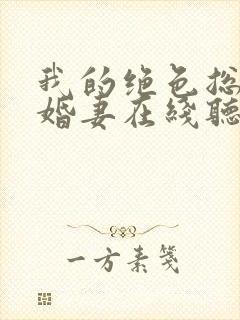 我的绝色总
婚妻在线听
一方素笺